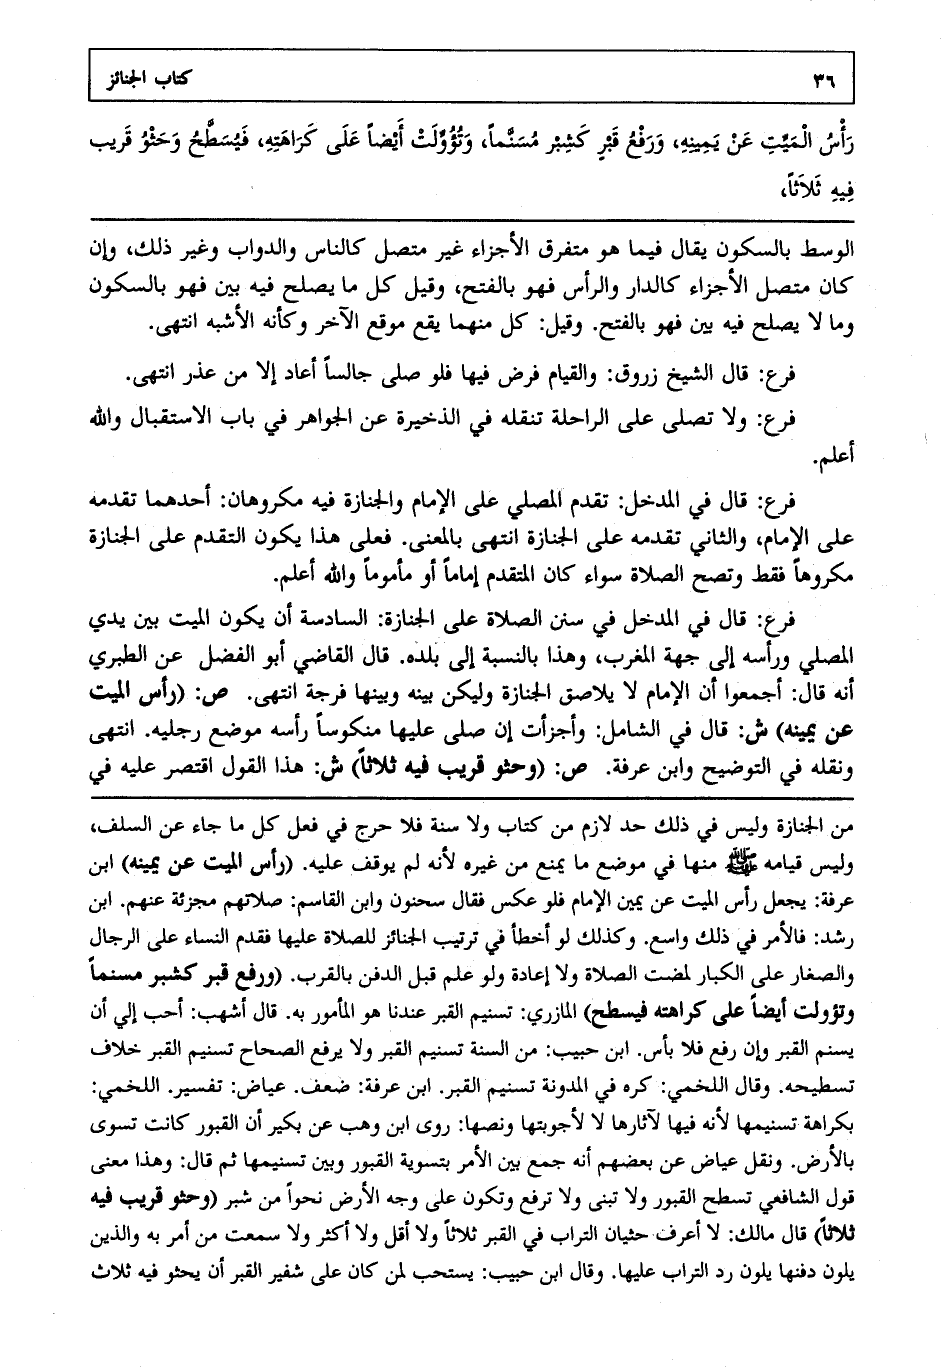 ٣٦ كتاب الجنائز
رَأْسُ الْمَيِّتِ عَنْ يَمِينِهِ، وَرَفْعُ قَبْرٍ كَشِبْرٍ مُسَنَّماً، وَتُؤُوِّلَتْ أَيْضاً عَلَى كَرَاهَتِهِ، فَيُسَطَّحُ وَحَثْوُ قَرِيب
فِيهِ ثَلاَثاً،
الوسط بالسكون يقال فيما هو متفرق الأجزاء غير متصل كالناس والدواب وغير ذلك، وإن
كان متصل الأجزاء كالدار والرأس فهو بالفتح، وقيل كل ما يصلح فيه بين فهو بالسكون
وما لا يصلح فيه بين فهو بالفتح. وقيل: كل منهما يقع موقع الآخر وكأنه الأشبه انتهى.
فرع: قال الشيخ زروق: والقيام فرض فيها فلو صلى جالساً أعاد إلا من عذر انتهى.
فرع: ولا تصلى على الراحلة تنقله في الذخيرة عن الجواهر في باب الاستقبال والله
أعلم.
فرع: قال في المدخل: تقدم المصلي على الإمام والجنازة فيه مكروهان: أحدهما تقدمه
على الإمام، والثاني تقدمه على الجنازة انتهى بالمعنى. فعلى هذا يكون التقدم على الجنازة
مكروهاً فقط وتصح الصلاة سواء كان المتقدم إماماً أو مأموماً والله أعلم.
فرع: قال في المدخل في سنن الصلاة على الجنازة: السادسة أن يكون الميت بين يدي
المصلي ورأسه إلى جهة المغرب، وهذا بالنسبة إلى بلده. قال القاضي أبو الفضل عن الطبري
أنه قال: أجمعوا أن الإمام لا يلاصق الجنازة وليكن بينه وبينها فرجة انتهى. ص: (رأس الميت
عن يمينه) ش: قال في الشامل: وأجزأت إن صلى عليها منكوساً رأسه موضع رجليه. انتهى
ونقله في التوضيح وابن عرفة. ص: (وحثو قريب فيه ثلاثاً) ش: هذا القول اقتصر عليه في
من الجنازة وليس في ذلك حد لازم من كتاب ولا سنة فلا حرج في فعل كل ما جاء عن السلف،
وليس قيامه ﷺ منها في موضع ما يمنع من غيره لأنه لم يوقف عليه. (رأس الميت عن يمينه) ابن
عرفة: يجعل رأس الميت عن يمين الإمام فلو عكس فقال سحنون وابن القاسم: صلاتهم مجزئة عنهم. ابن
رشد: فالأمر في ذلك واسع. وكذلك لو أخطأ في ترتيب الجنائز للصلاة عليها فقدم النساء على الرجال
والصغار على الكبار لمضت الصلاة ولا إعادة ولو علم قبل الدفن بالقرب. (ورفع قبر كشبر مسنماً
وتؤولت أيضاً على كراهته فيسطح) المازري: تسنيم القبر عندنا هو المأمور به. قال أشهب: أحب إلي أن
يسنم القبر وإن رفع فلا بأس. ابن حبيب: من السنة تسنيم القبر ولا يرفع الصحاح تسنيم القبر خلاف
تسطيحه. وقال اللخمي: كره في المدونة تسنيم القبر. ابن عرفة: ضعف. عياض: تفسير. اللخمي:
بكراهة تسنيمها لأنه فيها لآثارها لا لأجوبتها ونصها: روى ابن وهب عن بكير أن القبور كانت تسوى
بالأرض. ونقل عياض عن بعضهم أنه جمع بين الأمر بتسوية القبور وبين تسنيمها ثم قال: وهذا معنى
قول الشافعي تسطح القبور ولا تبنى ولا ترفع وتكون على وجه الأرض نحواً من شبر (وحثو قريب فيه
ثلاثاً) قال مالك: لا أعرف حثيان التراب في القبر ثلاثاً ولا أقل ولا أكثر ولا سمعت من أمر به والذين
يلون دفنها يلون رد التراب عليها. وقال ابن حبيب: يستحب لمن كان على شفير القبر أن يحثو فيه ثلاث